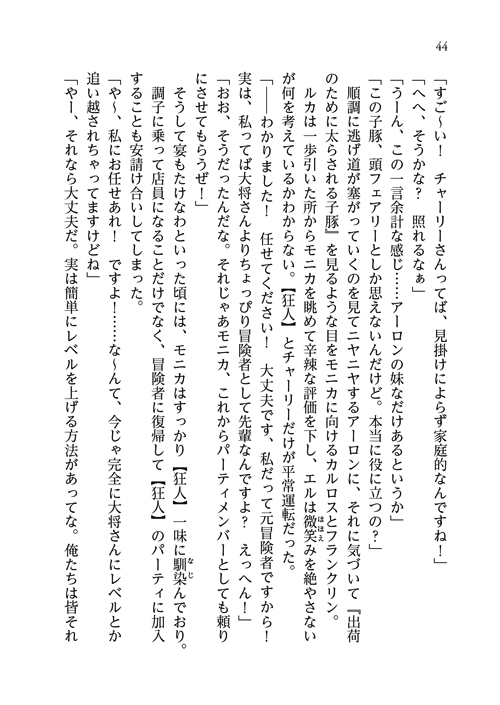 44
「すご〜い！　チャーリーさんってば、見掛けによらず家庭的なんですね！」
「へへ、そうかな？　照れるなぁ」
「うーん、この一言余計な感じ……アーロンの妹なだけあるというか」
「この子豚、頭フェアリーとしか思えないんだけど。本当に役に立つの？」
　順調に逃げ道が塞がっていくのを見てニヤニヤするアーロンに、それに気づいて『出荷
のために太らされる子豚』を見るような目をモニカに向けるカルロスとフランクリン。
　ルカは一歩引いた所からモニカを眺めて辛辣な評価を下し、エルは微笑みを絶やさない
が何を考えているかわからない。【狂人】とチャーリーだけが平常運転だった。
「――わかりました！　任せてください！　大丈夫です、私だって元冒険者ですから！
実は、私ってば大将さんよりちょっぴり冒険者として先輩なんですよ？　えっへん！」
「おお、そうだったんだな。それじゃあモニカ、これからパーティメンバーとしても頼り
にさせてもらうぜ！」
　そうして宴もたけなわといった頃には、モニカはすっかり【狂人】一味に馴染んでおり。
　調子に乗って店員になることだけでなく、冒険者に復帰して【狂人】のパーティに加入
することも安請け合いしてしまった。
「や〜、私にお任せあれ！　ですよ！……な〜んて、今じゃ完全に大将さんにレベルとか
追い越されちゃってますけどね」
「やー、それなら大丈夫だ。実は簡単にレベルを上げる方法があってな。俺たちは皆それ